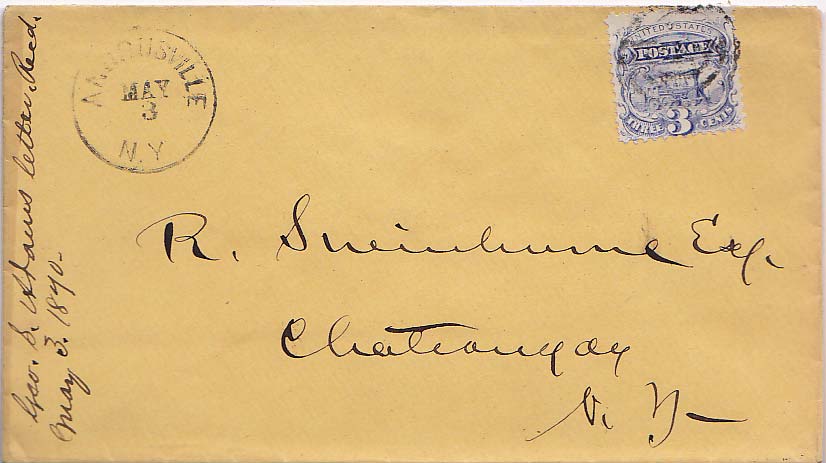 ANDRUSVILLE
MAY
3
N.Y
UNITED STATES
POSTAGE
THREE 3 CENTS
R. Sneinhume Esq.
Chateaugay
N. Y
Geo. S. Adams letter, Recd.
May 3. 1870-